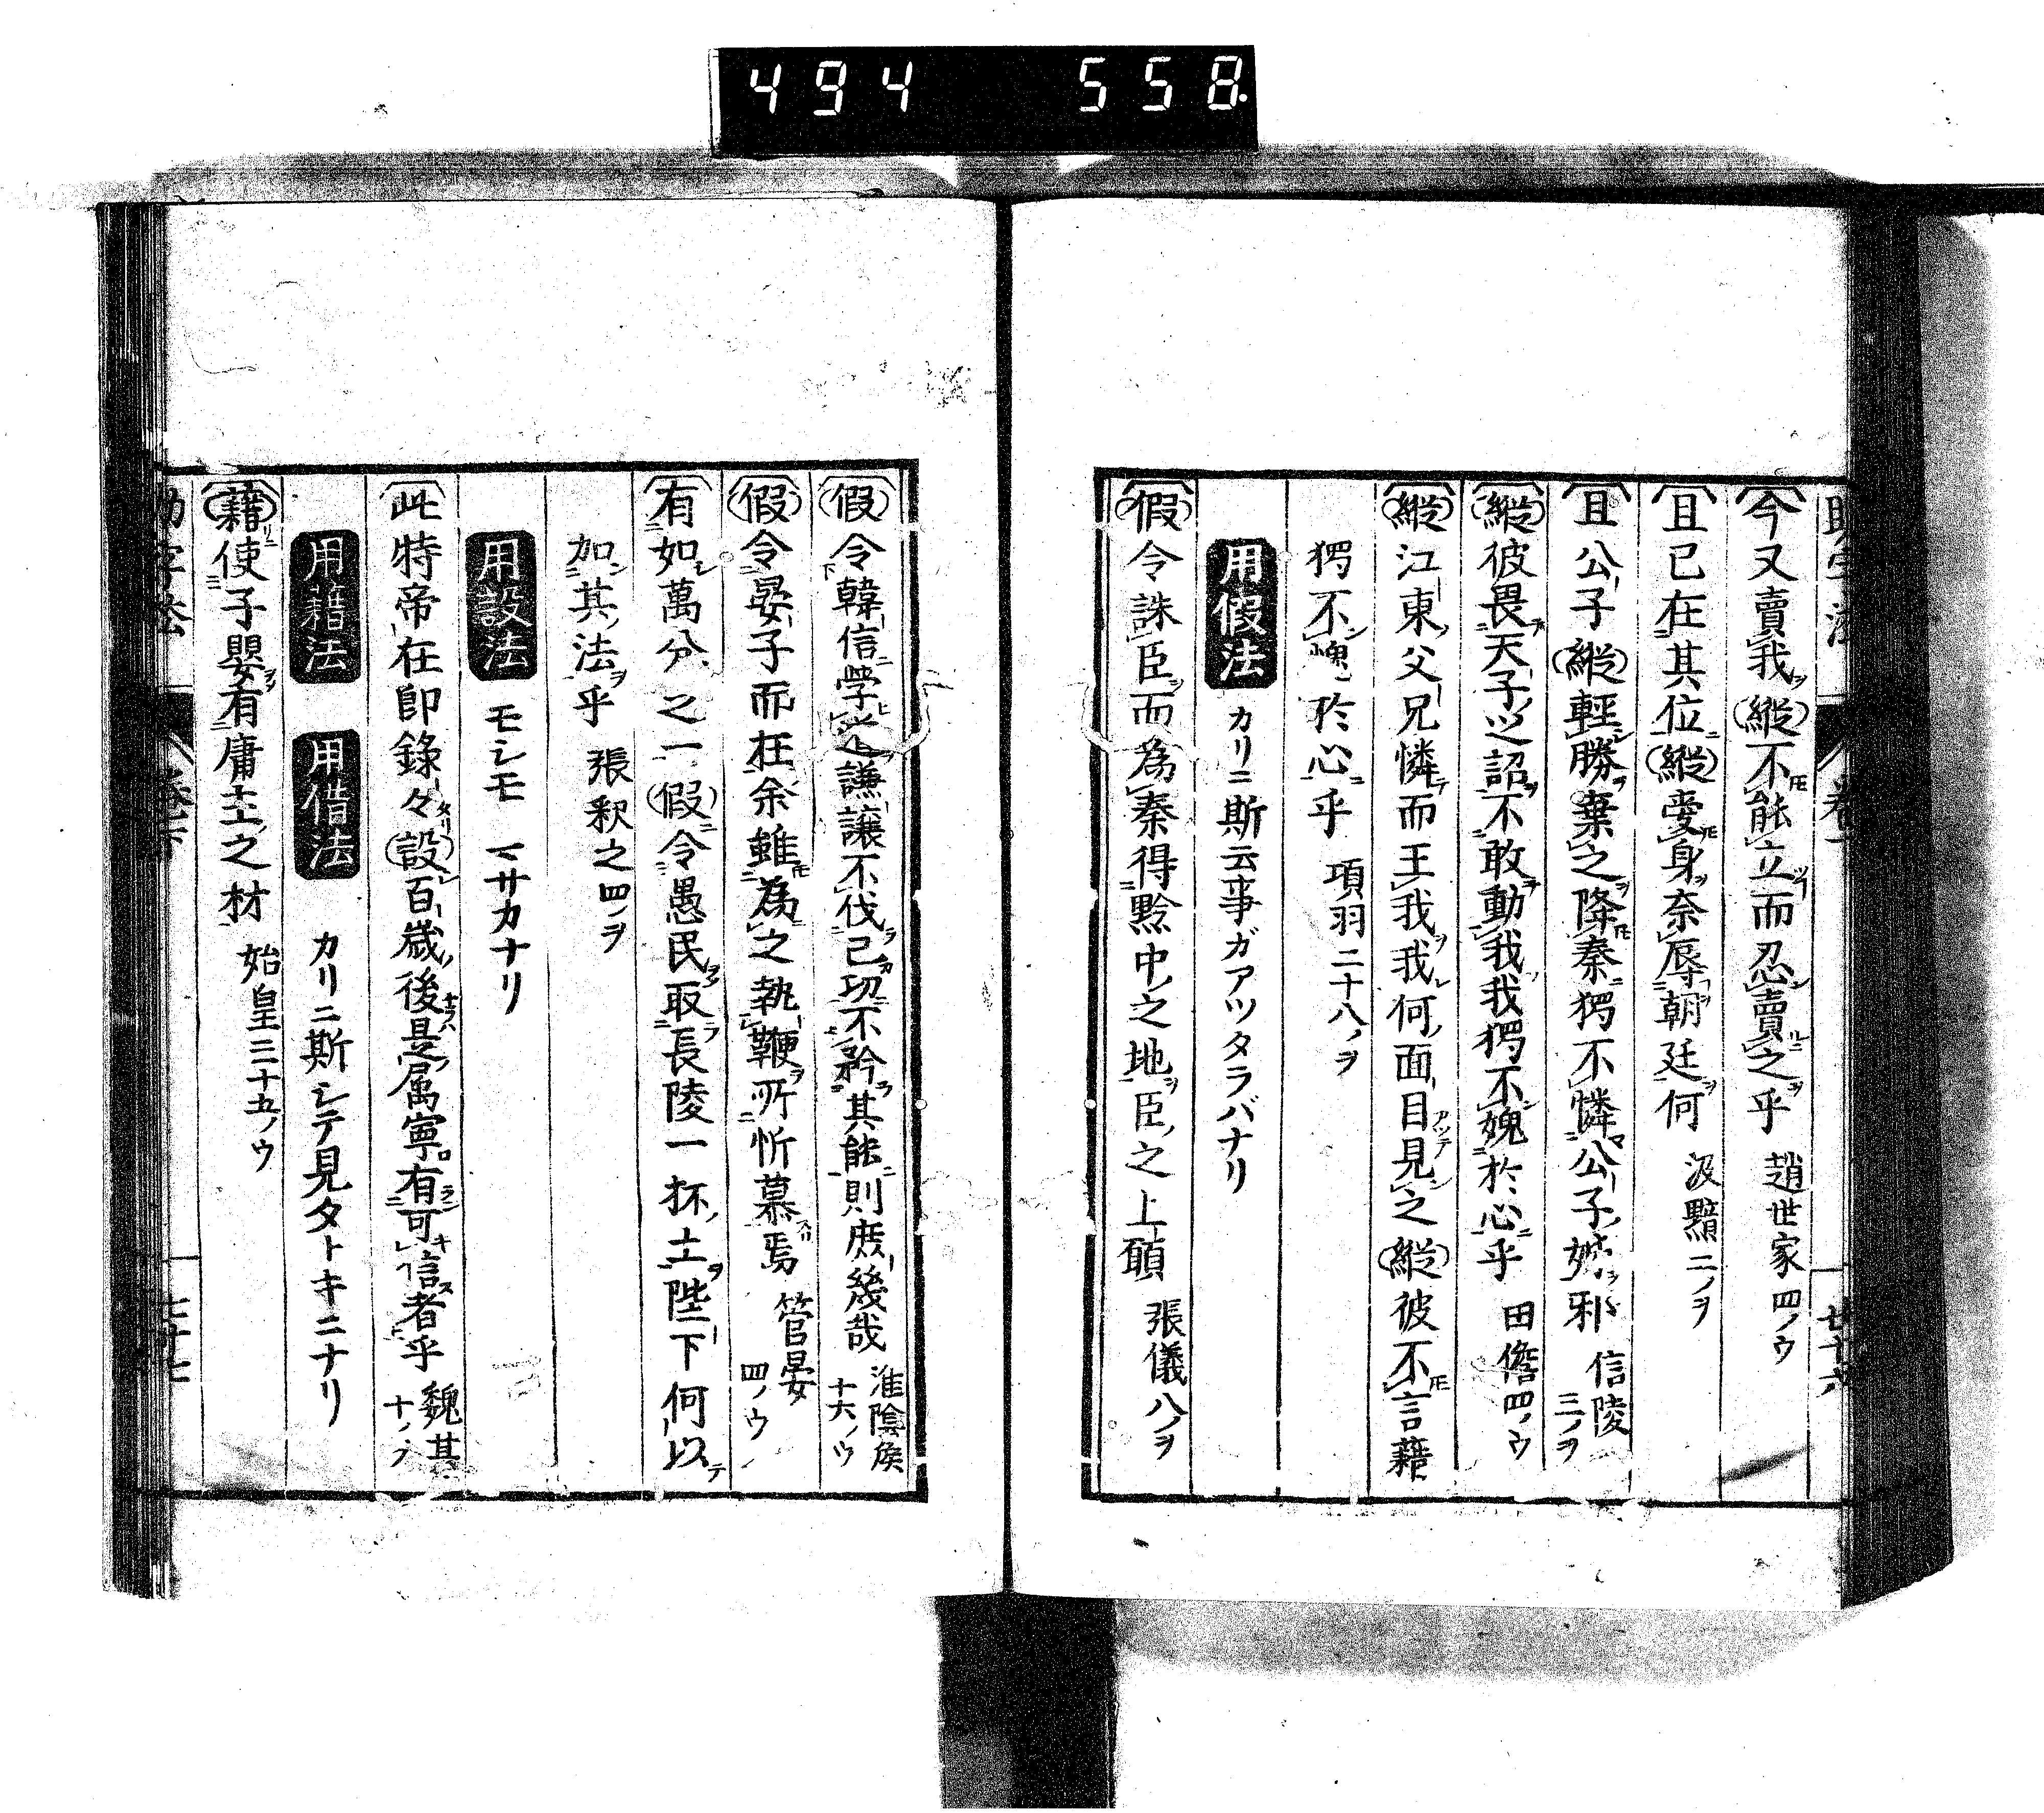 494 558
今又賣我縱不能立而忍賣之乎 趙世家四ノウ
且已在其位縱愛身奈辱朝廷何 汲黯二ノヲ
且公子縱輕勝棄之降秦獨不憐公子姉邪 信陵三ノヲ
縱彼畏天子之詔不敢動我我獨不媿於心乎 田儋四ノウ
縱江東父兄憐而王我我何面目見之縱彼不言藉
獨不媿於心乎 項羽二十八ノヲ
用假法 カリニ斯云事ガアツタラバナリ
假令誅臣而為秦得黔中之地臣之上願 張儀八ノヲ
假令韓信學道謙讓不伐己功不矜其能則庶幾哉 淮陰侯十六ノウ
假令晏子而在余雖為之執鞭所忻慕焉 管晏四ノウ
有如萬分之一假令愚民取長陵一抔土陛下何以
加其法乎 張釈之四ノヲ
用設法 モシモ マサカナリ
此特帝在即錄々設百歲後是属寧有可信者乎 魏其十ノ
用藉法 用借法 カリニ斯シテ見タトキニナリ
藉使子嬰有庸主之材 始皇三十五ノウ